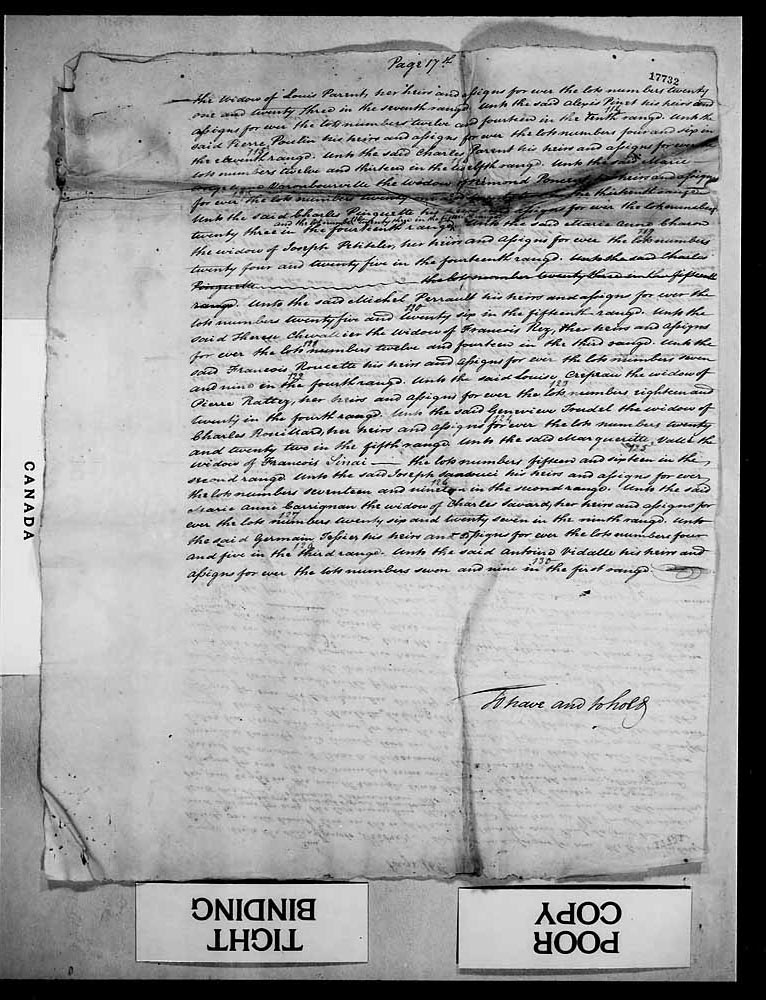 Page 17th
17732
the Widow of Louis Parent, her heirs and assigns for ever the lots numbers twenty
one and twenty three in the seventh range. Unto the said Alexis Pinet his heirs and
114
assigns for ever the lots numbers twelve and fourteen in the Tenth range. Unto the
said Pierre Poulin his heirs and assigns for ever the lots numbers four and six in
115
the eleventh range. Unto the said Charles Parent his heirs and assigns for ever the
lots numbers twelve and thirteen in the twelfth range. Unto the said Marie
the Widow of heirs and assigns
for ever the lots numbers twenty the thirteenth range
Unto the said Charles Pinguette his assigns for ever the lot number
and the lot number twenty three in the fifteenth range
twenty three in the fourteenth range. Unto the said Marie Anne Charon
the widow of Joseph Petitcler, her heirs and assigns for ever the lots numbers
twenty four and twenty five in the fourteenth range. Unto the said Charles
Pinguette the lot number twenty three in the fifteenth
range. Unto the said Michel Perrault his heirs and assigns for ever the
lots numbers twenty five and twenty six in the fifteenth range. Unto the
said Therese Chevalier the Widow of Francois Rey, her heirs and assigns
for ever the lots numbers twelve and fourteen in the third range. Unto the
said Francois Roucette his heirs and assigns for ever the lots numbers seven
and nine in the fourth range. Unto the said Louise Crepeau the widow of
Pierre Rattery, her heirs and assigns for ever the lots numbers eighteen and
twenty in the fourth range. Unto the said Genevieve Trudel the widow of
Charles Rouillard, her heirs and assigns for ever the lots numbers twenty
and twenty two in the fifth range. Unto the said Marguerite Vallé the
125
widow of Francois Sinai the lots numbers fifteen and sixteen in the
second range. Unto the said Joseph his heirs and assigns for ever
126
the lots numbers seventeen and nineteen in the second range. Unto the said
Marie Anne Carrignan the widow of Charles Savard, her heirs and assigns for
127
ever the lots numbers twenty six and twenty seven in the ninth range. Unto
the said Germain Tessier his heirs and assigns for ever the lots numbers four
and five in the third range. Unto the said Antoine Vidalle his heirs and
130
assigns for ever the lots numbers seven and nine in the first range
To have and to hold
CANADA
TIGHT
BINDING
POOR
COPY